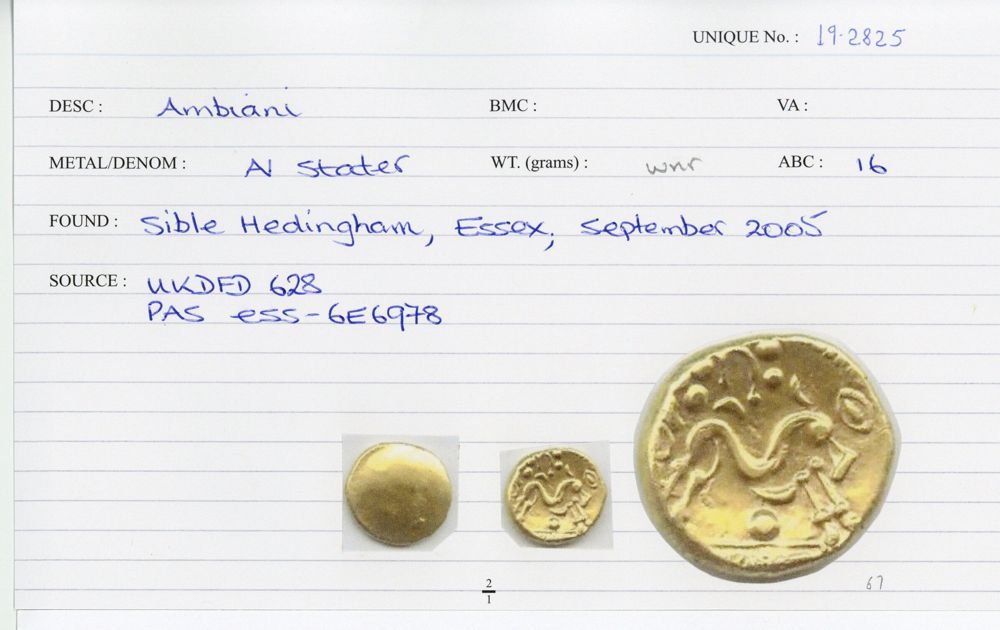 UNIQUE No. : 19-2825
DESC : Ambiani BMC : VA :
METAL/DENOM : AV Stater WT. (grams) : wnr ABC : 16
FOUND : Sible Hedingham, Essex, September 2005
SOURCE : UKDFD 628
PAS ESS-6E6978
2
1
67